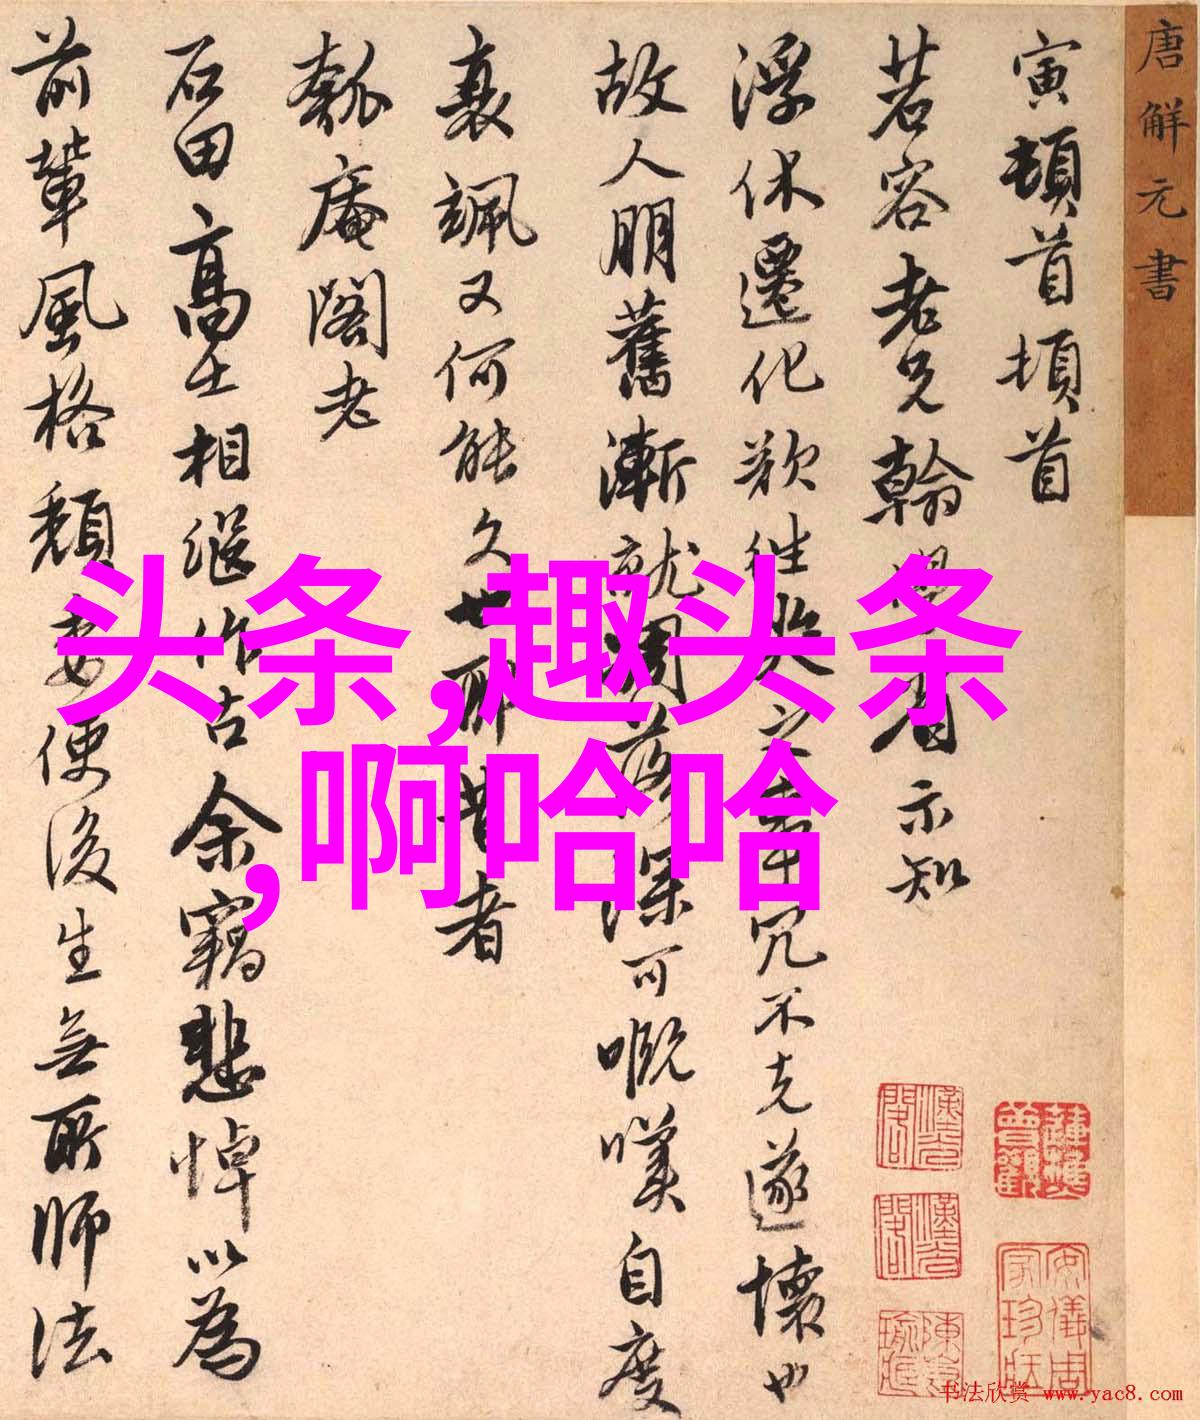 唐解元書
寅頓首頓首
茗容老兄翰
示知
浮休遷化欲往
冗不克遂懷也
故人朋舊漸就凋落深可嘅嘆自度
衰颯又何能久
者
瓠庵閣老
石田高士相繼作古余竊悲悼以為
前輩風格頹
委便後生無所師法
头条,趣头条
,啊哈哈
书法欣赏 www.yac8.com